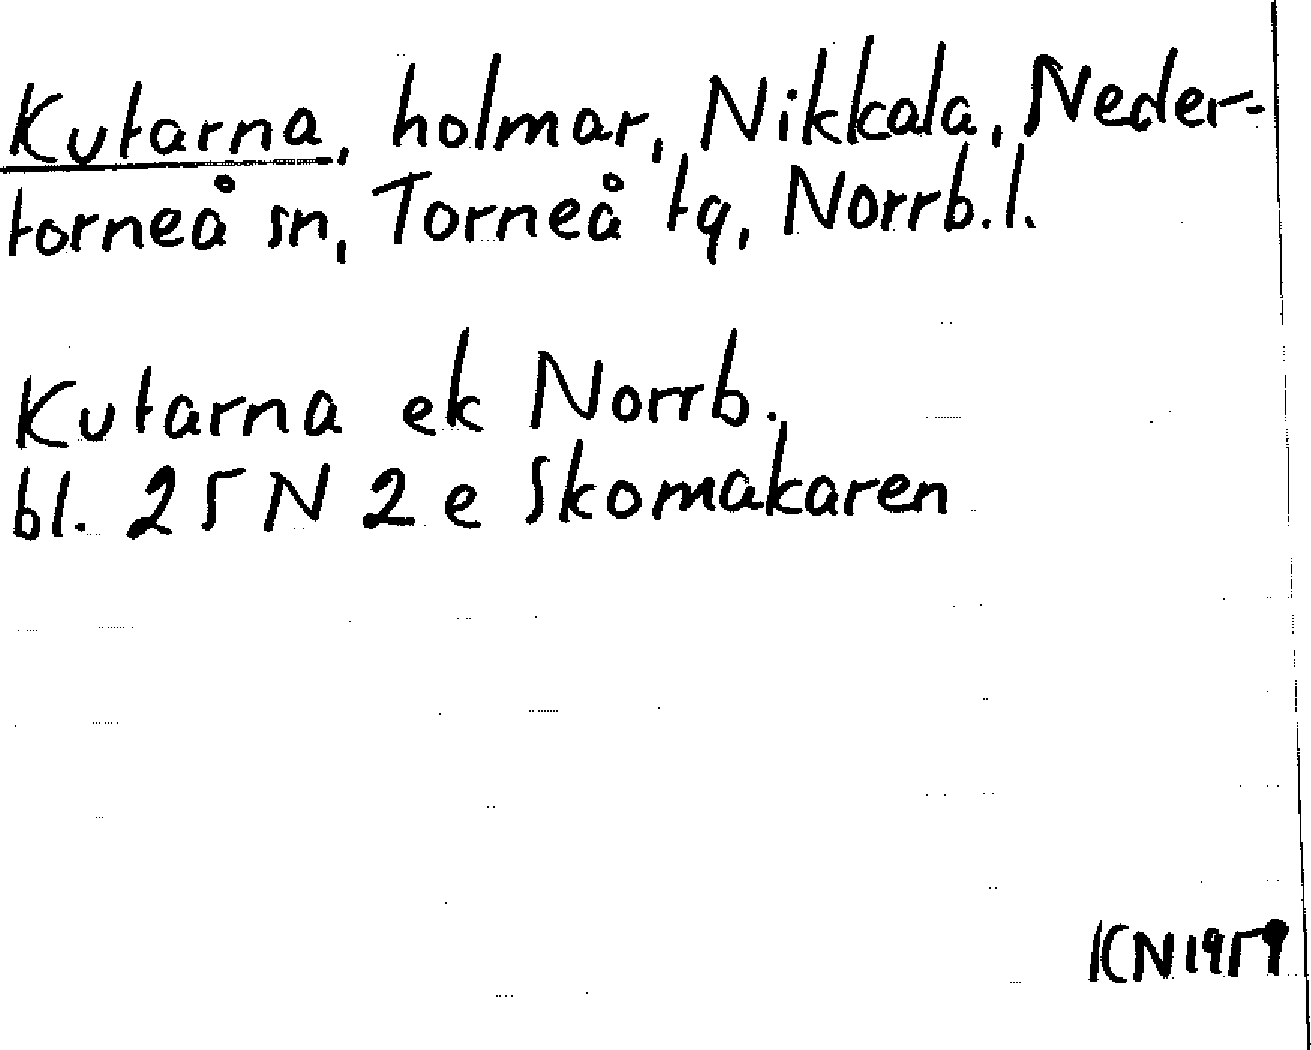 Kutarna, holmar, Nikkala, Neder-
torneå sn, Torneå tg, Norrb.l.
Kutarna ek Norrb.
bl. 25 N 2 e Skomakaren
KN 1959